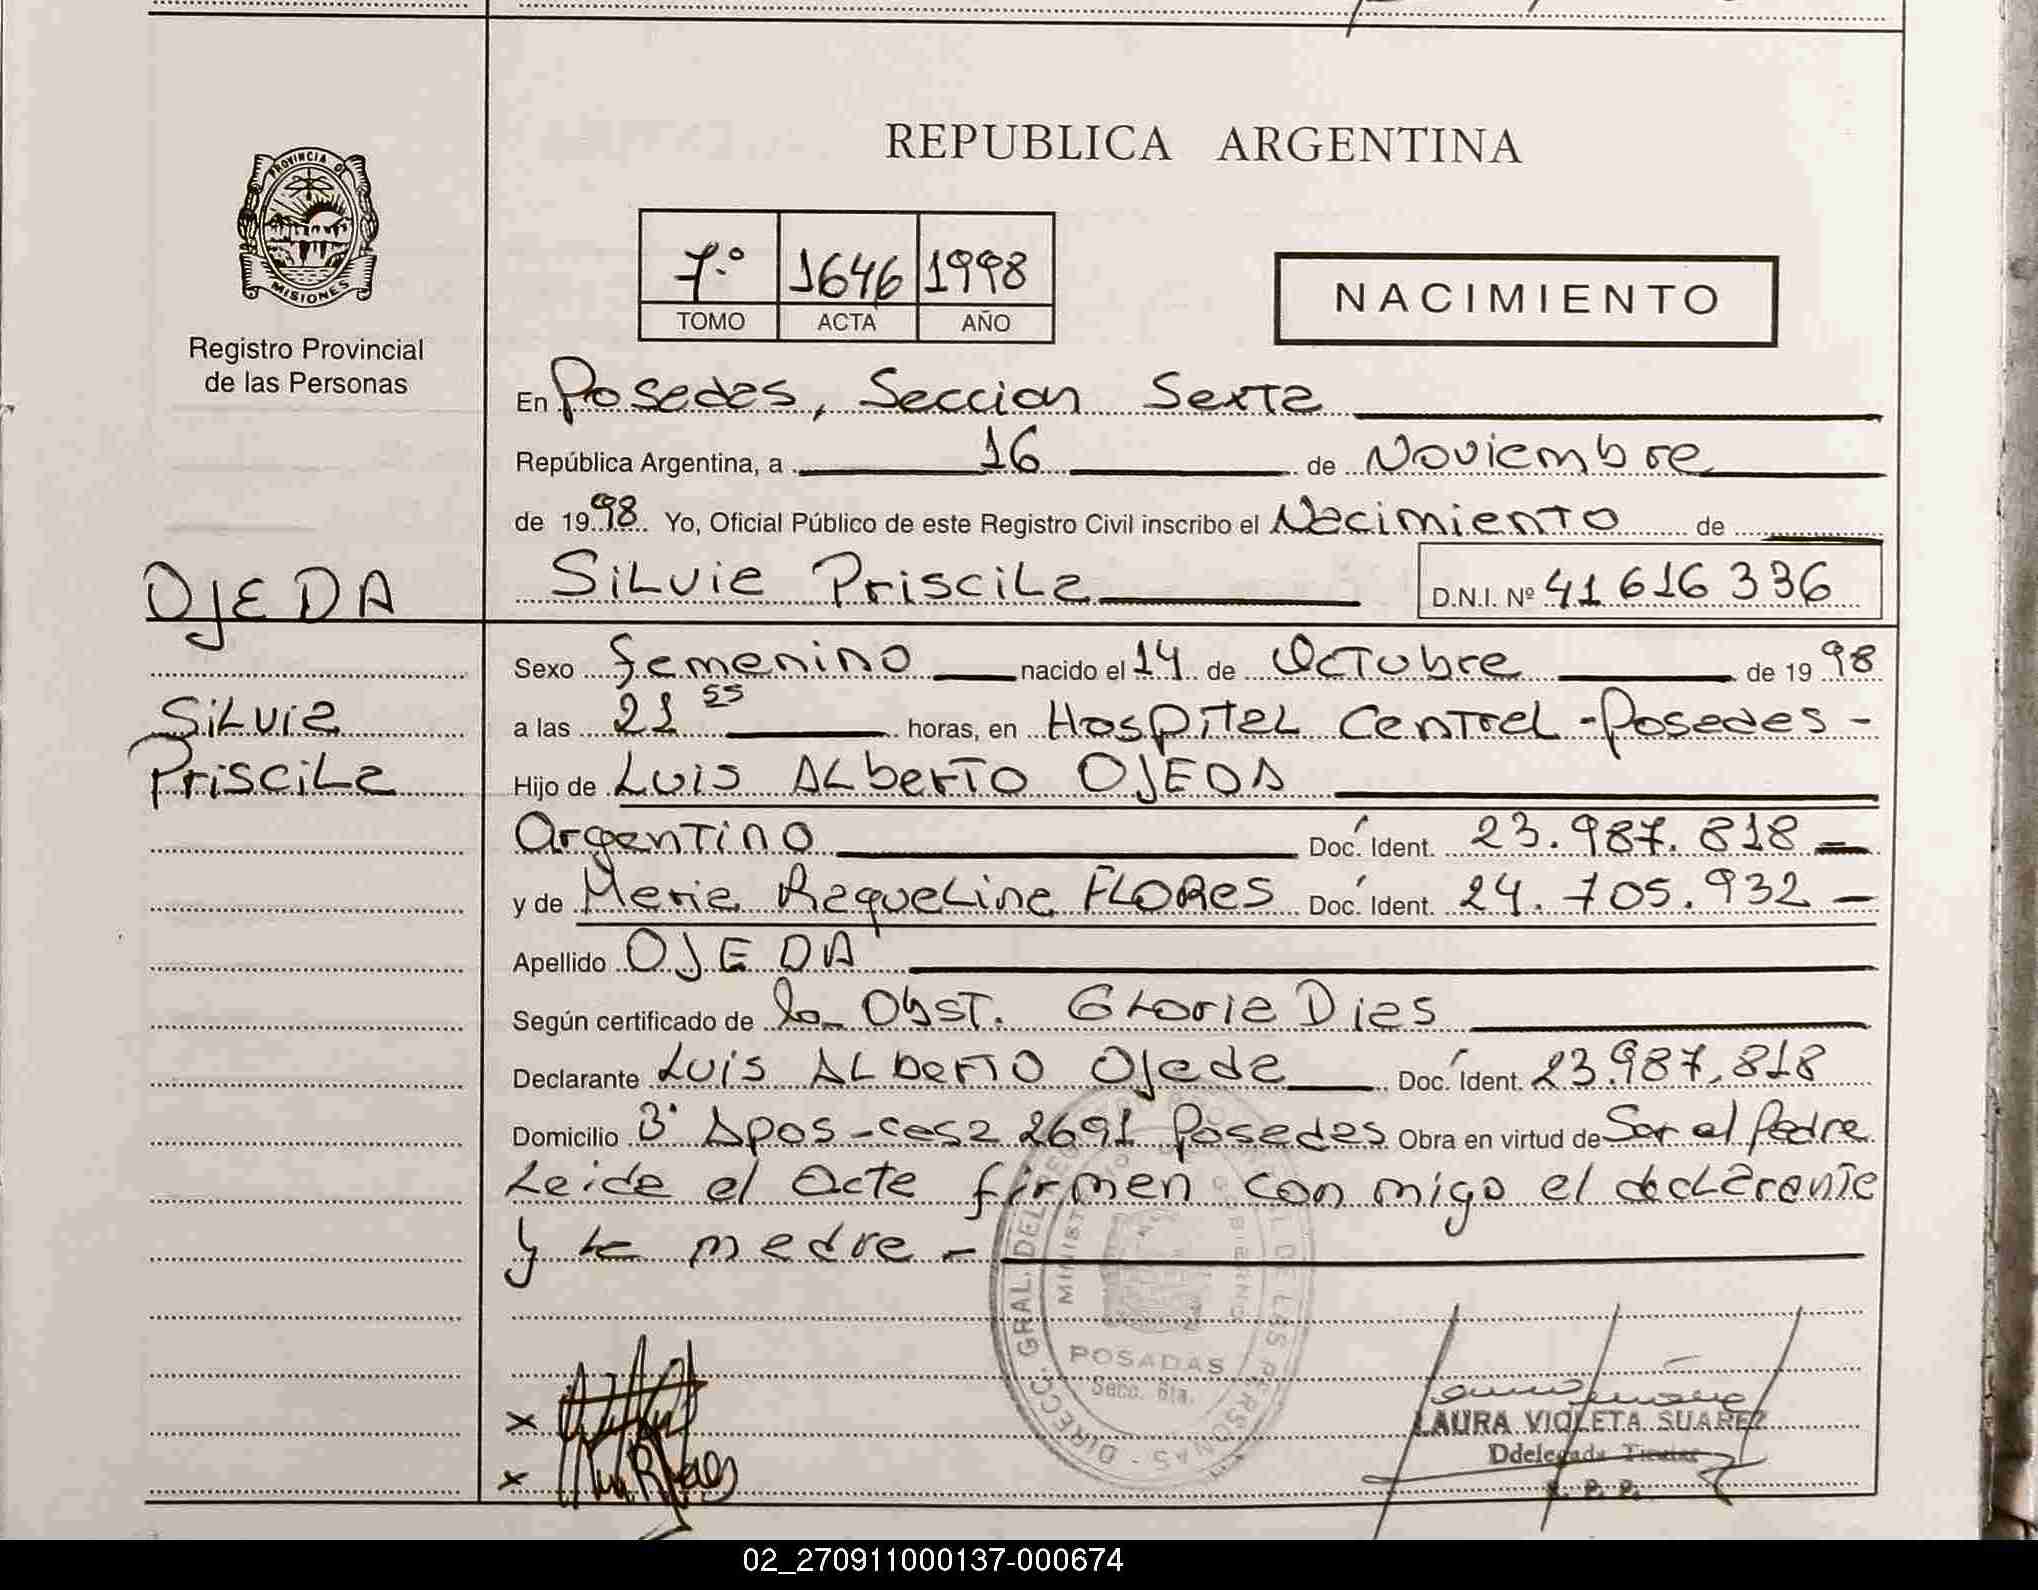 REPUBLICA ARGENTINA
PROVINCIA DE
MISIONES
Registro Provincial
de las Personas
7.º 1646 1998
TOMO ACTA AÑO
NACIMIENTO
En Posadas, Seccion Sexta
República Argentina, a 16 de Noviembre
de 1998 Yo, Oficial Público de este Registro Civil inscribo el Nacimiento de
OJEDA
Silvia Priscila D.N.I. Nº 41 616 336
Sexo femenino nacido el 14 de Octubre de 1998
Silvia
a las 21 55 horas, en Hospital Central - Posadas -
Priscila
Hijo de Luis Alberto OJEDA
Argentino Doc. Ident. 23.987.818 -
y de Maria Raquelina FLORES Doc. Ident. 24.705.932 -
Apellido OJEDA
Según certificado de la Obst. Gloria Dias
Declarante Luis Alberto Ojeda Doc. Ident. 23.987.818
Domicilio B° Apos - casa 2691 Posadas Obra en virtud de Ser el Padre
Leida el Acta firman con migo el declarante
y la madre -
DIRECC. GRAL. DEL REG. DE LAS PERSONAS
POSADAS
Secc. 6ta.
x
x
LAURA VIOLETA SUAREZ
Ddelegada Titular
R. P. P.
02_270911000137-000674